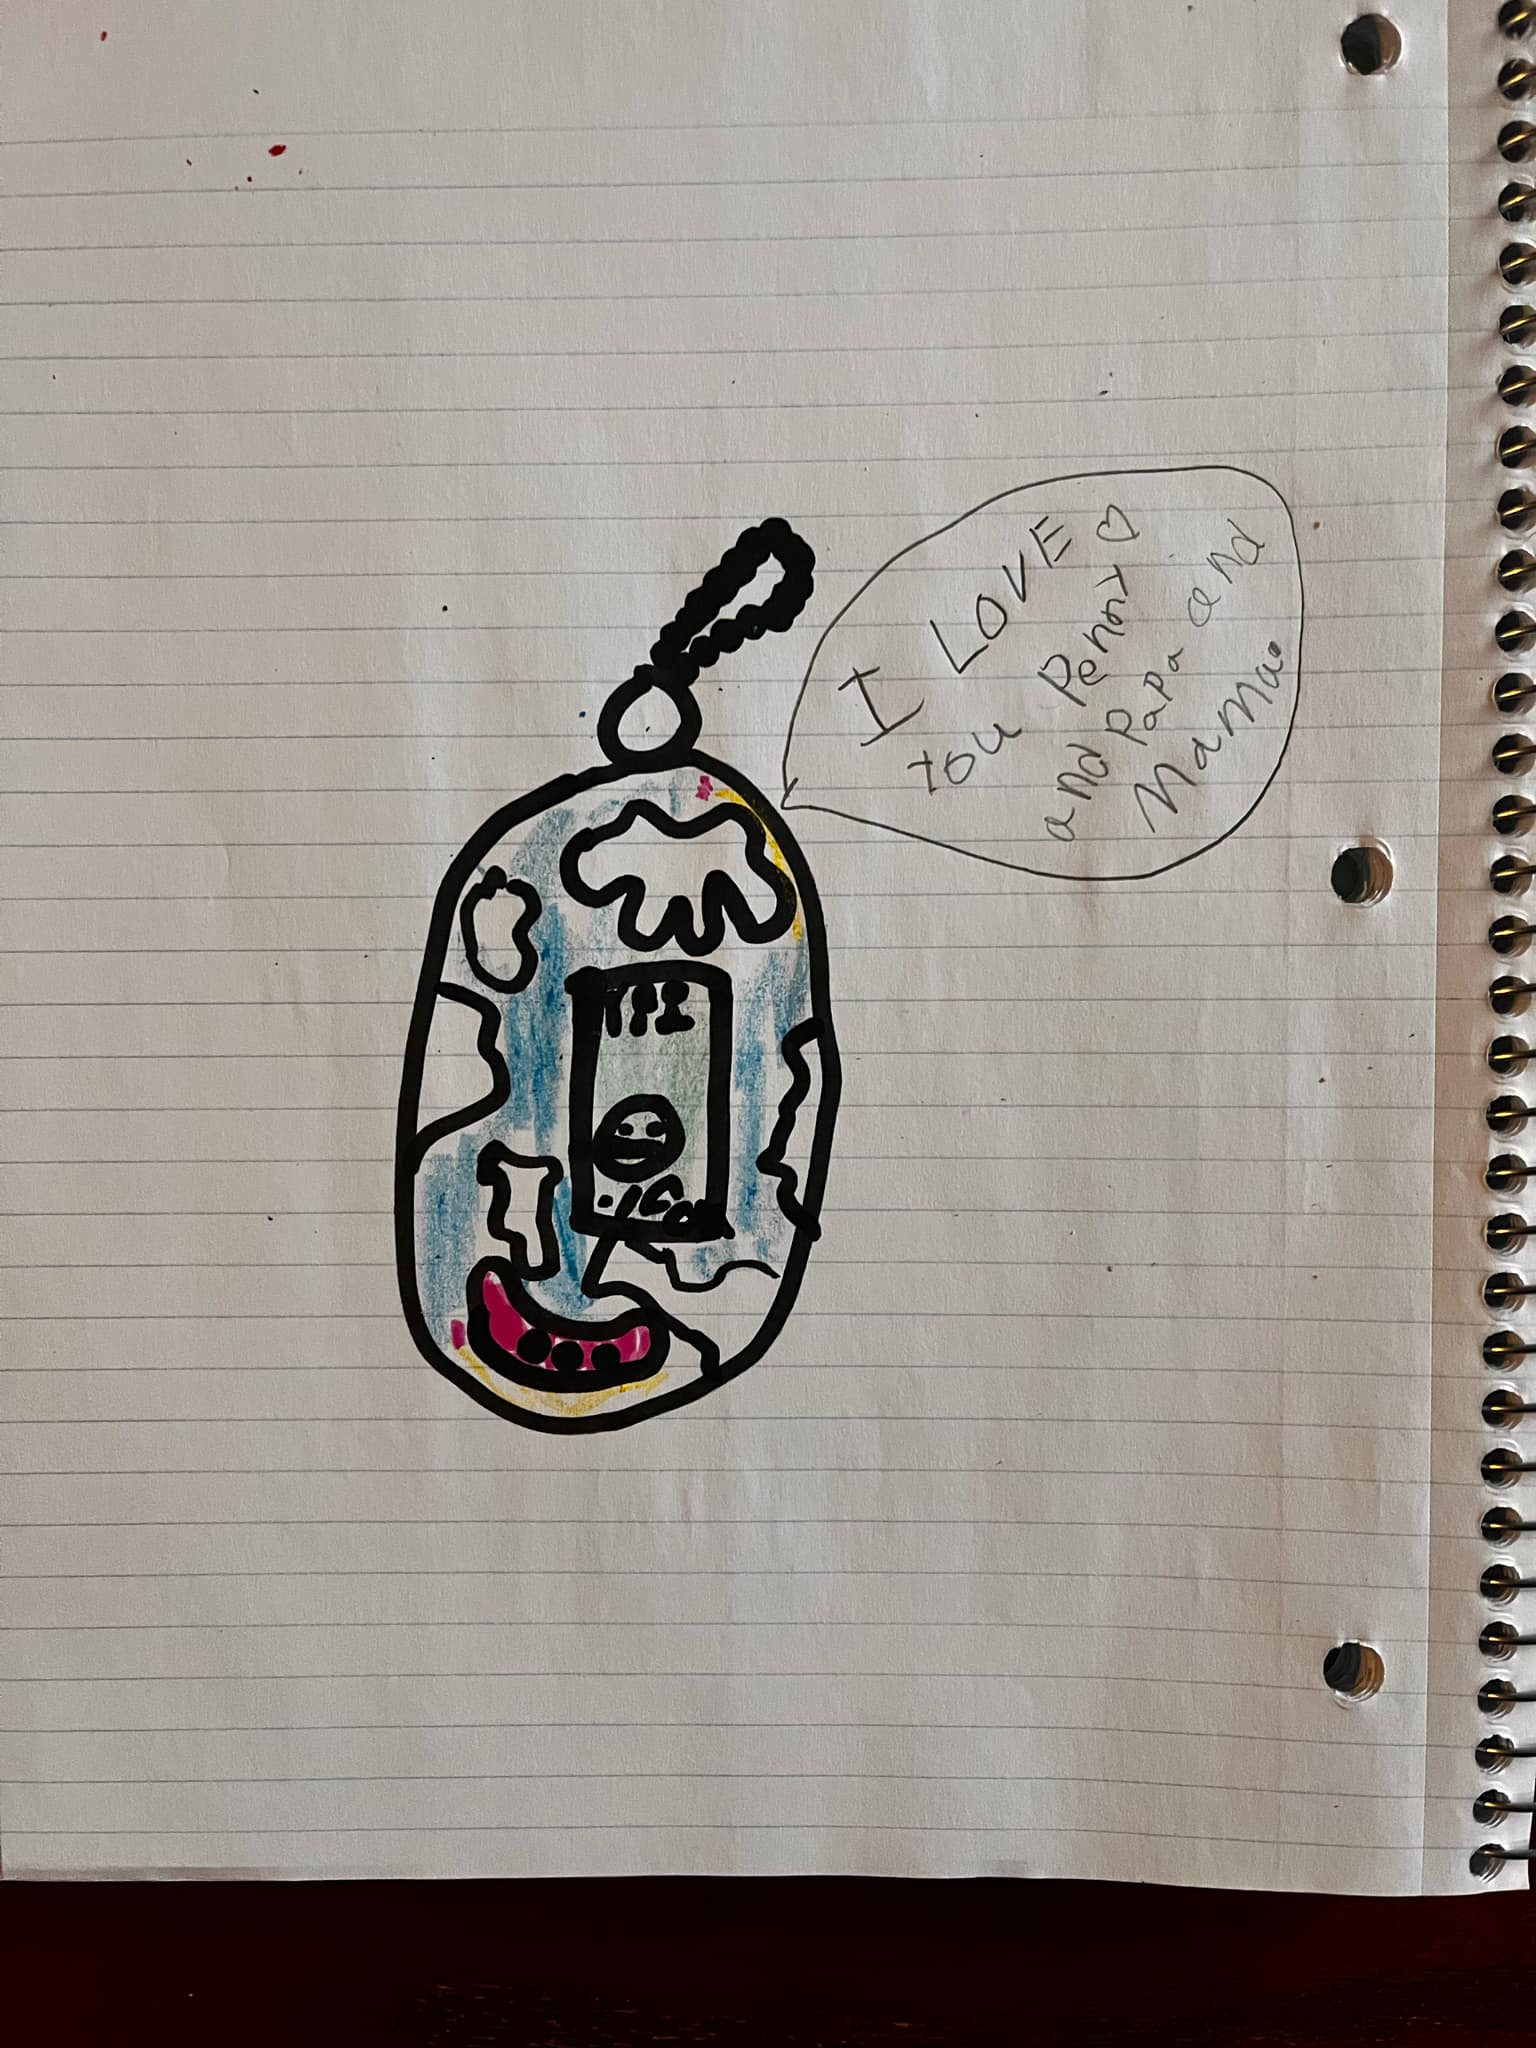 I LOVE
you Penny ♡
and Papa and
Mama